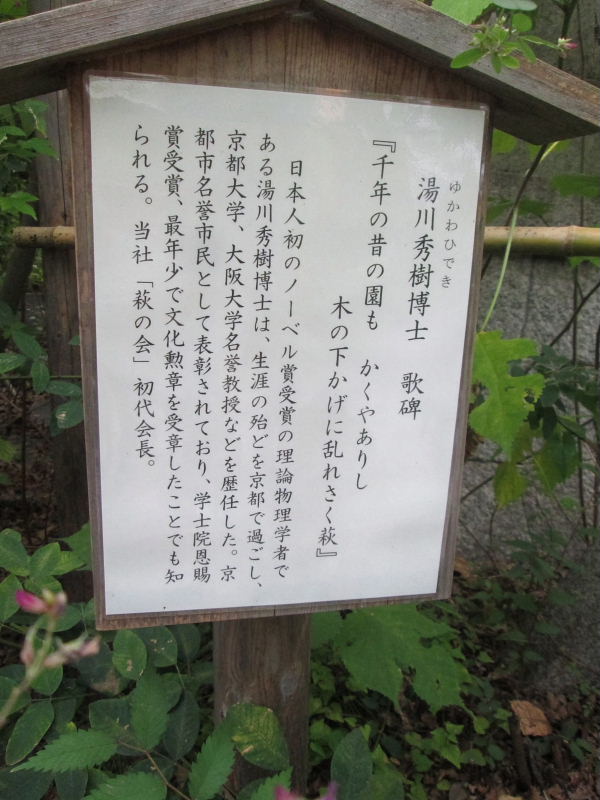 ゆかわひでき
湯川秀樹博士 歌碑
『千年の昔の園も かくやありし
木の下かげに乱れさく萩』
日本人初のノーベル賞受賞の理論物理学者で
ある湯川秀樹博士は、生涯の殆どを京都で過ごし、
京都大学、大阪大学名誉教授などを歴任した。京
都市名誉市民として表彰されており、学士院恩賜
賞受賞、最年少で文化勲章を受章したことでも知
られる。当社「萩の会」初代会長。